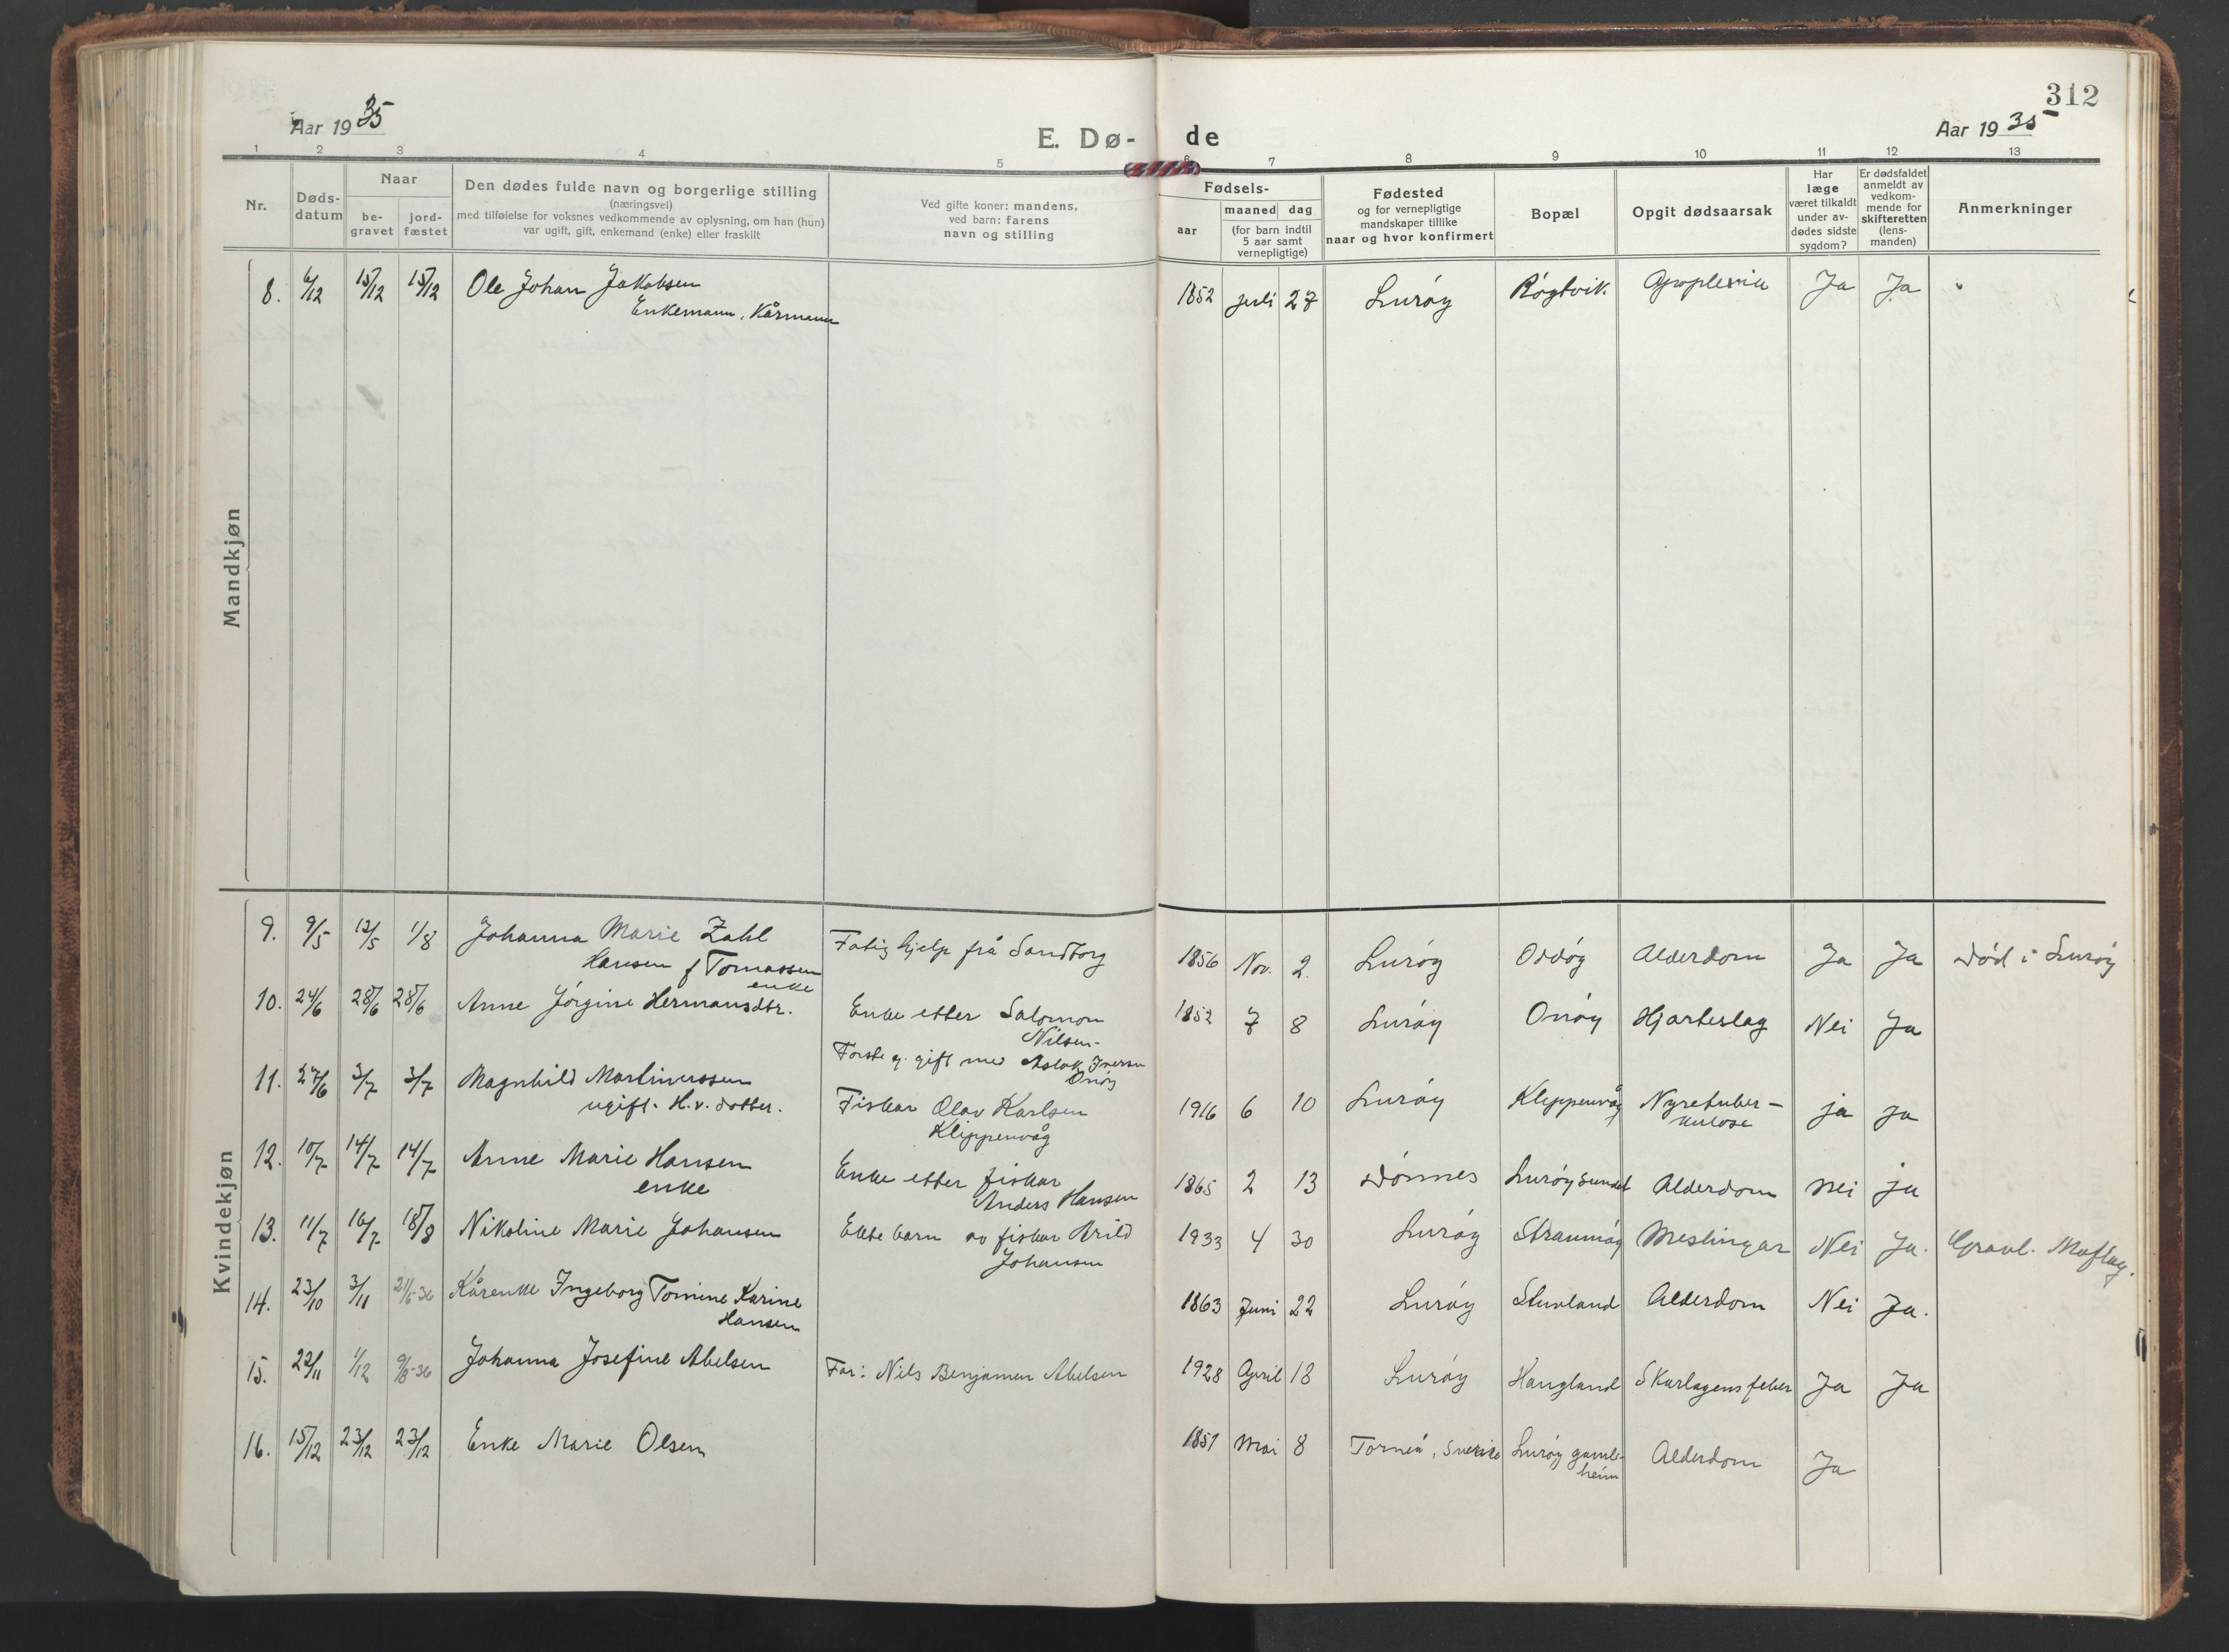 312
Aar 1935
E. Dø-
de
Aar 1935
1 2 3 4 5 6 7 8 9 10 11 12 13
Nr.
Døds-
datum
Naar
be-
gravet
jord-
fæstet
Den dødes fulde navn og borgerlige stilling
(næringsvei)
med tilføielse for voksnes vedkommende av oplysning, om han (hun)
var ugift, gift, enkemand (enke) eller fraskilt
Ved gifte koner: mandens,
ved barn: farens
navn og stilling
Fødsels-
aar
maaned dag
(for barn indtil
5 aar samt
vernepligtige)
Fødested
og for vernepligtige
mandskaper tillike
naar og hvor konfirmert
Bopæl
Opgit dødsaarsak
Har
læge
været tilkaldt
under av-
dødes sidste
sygdom?
Er dødsfaldet
anmeldt av
vedkom-
mende for
skifteretten
(lens-
manden)
Anmerkninger
Mandkjøn
8. 6/12 15/12 15/12 Ole Johan Jakobsen 1852 juli 27 Lurøy Ja Ja
Enkemann, Kårmann
Kvindekjøn
9. 9/5 12/5 1/8 Johanna Marie Zahl Fatig hjelp frå Sandtorg 1856 Nov. 2. Lurøy Alderdom Ja Ja Død i Lurøy
Hansen f Tomassen
enke
10. 24/6 28/6 28/6 Anne Jørgine Hermansdtr. Enke etter Salomon 1852 7 8 Lurøy Onøy Hjarteslag Nei Ja
Nilsen-
Forste g. gift med Aslak Iversen
Onøy
11. 27/6 3/7 3/7 Magnhild Martinussen Fiskar Olav Karlsen 1916 6 10 Lurøy Klippenvåg Nyretuber-
ugift. H.v. dotter. Klippenvåg kulose ja ja
12. 10/7 14/7 14/7 Anne Marie Hansen Enke etter fiskar 1865 2 13 Dønnes Lurøysundet Alderdom nei ja
enke Anders Hansen
13. 11/7 16/7 18/8 Nikoline Marie Johansen Ekte barn av fiskar Arild 1933 4 30 Lurøy Straumøy Meslingar Nei Ja.
Johansen
14. 23/10 3/11 21/5-36 Kårenke Ingeborg Tomine Karine 1863 Juni 22 Lurøy Stuvland Alderdom Nei Ja.
Hansen
15. 22/11 1/12 9/8-36 Johanna Josefine Abelsen Far: Nils Benjamin Abelsen 1928 April 18 Lurøy Haugland Skarlagensfeber Ja Ja
16. 15/12 23/12 23/12 Enke Marie Olsen 1851 Mai 8 Torneå, Sverike Lurøy gamle-
heim Alderdom Ja